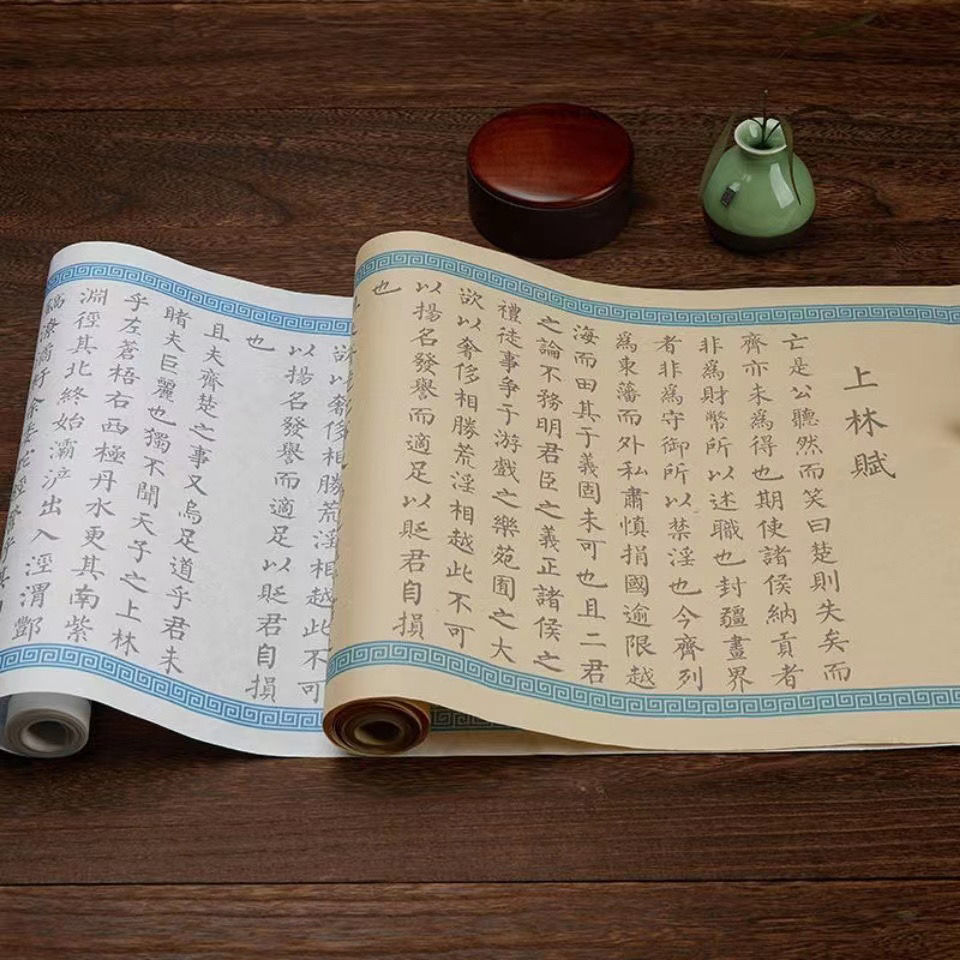 上林賦
亡是公聽然而笑曰楚則失矣而
齊亦未爲得也期使諸侯納貢者
非爲財幣所以述職也封疆畫界
者非爲守御所以禁淫也今齊列
爲東藩而外私肅慎捐國逾限越
海而田其于義固未可也且二君
之論不務明君臣之義正諸侯之
禮徒事爭于游戲之樂苑囿之大
欲以奢侈相勝荒淫相越此不可
以揚名發譽而適足以貶君自損
也
欲以奢侈相勝荒淫相越此不可
以揚名發譽而適足以貶君自損
也
且夫齊楚之事又烏足道乎君未
睹夫巨麗也獨不聞天子之上林
乎左蒼梧右西極丹水更其南紫
淵徑其北終始灞浐出入涇渭酆
鎬潦潏紆餘委蛇經營乎其